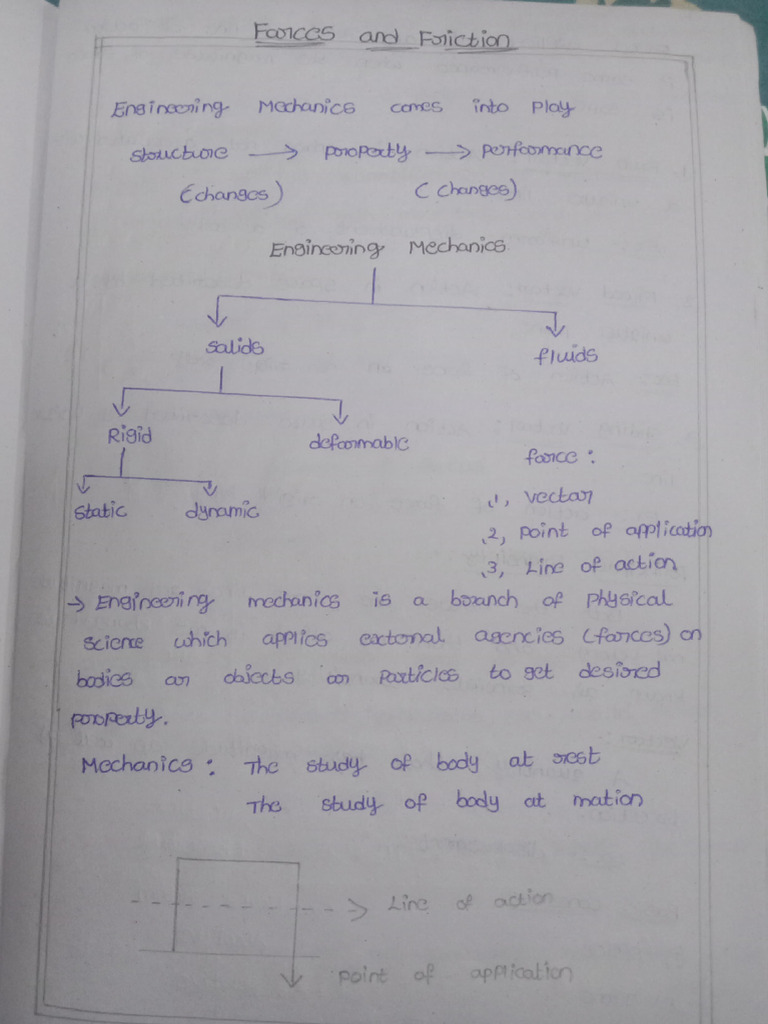 Forces and Friction
Engineering Mechanics comes into play
structure → property → performance
(changes) (changes)
Engineering Mechanics
solids fluids
Rigid deformable
force :
static dynamic
1, vector
2, point of application
3, Line of action
→ Engineering mechanics is a branch of physical
science which applies external agencies (forces) on
bodies or objects or particles to get desired
property.
Mechanics : The study of body at rest
The study of body at motion
Line of action
point of application